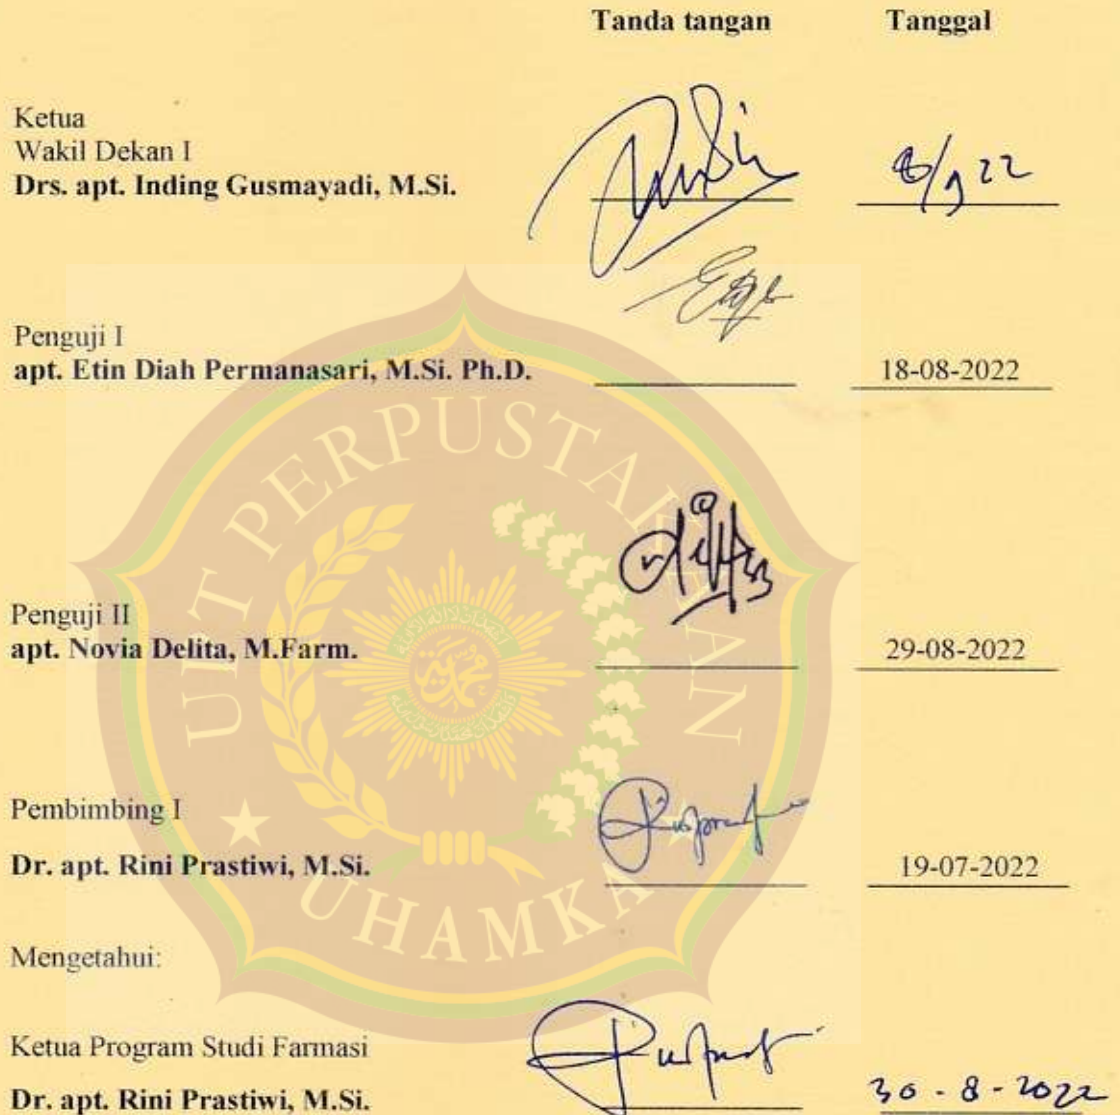 Tanda tangan Tanggal
Ketua
Wakil Dekan I
Drs. apt. Inding Gusmayadi, M.Si. 8/9 22
Penguji I
apt. Etin Diah Permanasari, M.Si. Ph.D. 18-08-2022
Penguji II
apt. Novia Delita, M.Farm. 29-08-2022
Pembimbing I
Dr. apt. Rini Prastiwi, M.Si. 19-07-2022
Mengetahui:
Ketua Program Studi Farmasi
Dr. apt. Rini Prastiwi, M.Si. 30-8-2022
UPT PERPUSTAKAAN
UHAMKA